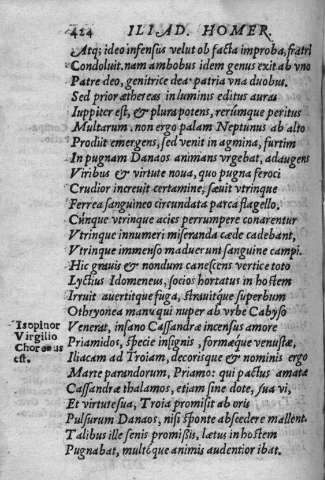 424 ILIAD. HOMER.
Atq; ideo infensus velut ob facta improba, fratri
Condoluit. nam ambobus idem genus exit ab vno
Patre deo, genitrice dea: patria vna duobus.
Sed prior æthereas in luminis editus auras
Iuppiter est, & plura potens, rerúmque peritus
Multarum. non ergo palam Neptunus ab alto
Prodijt emergens, sed venit in agmina, furtim
In pugnam Danaos animans vrgebat, adaugens
Viribus & virtute noua, quo pugna feroci
Crudior increuit certamine, sæuit vtrinque
Ferrea sanguineo circundata parca flagello.
Cúnque vtrinque acies perrumpere conarentur
Vtrinque innumeri miseranda cæde cadebant,
Vtrinque immenso maduerunt sanguine campi.
Hic grauis & nondum canescens vertice toto
Lyctius Idomeneus, socios hortatus in hostem
Irruit auertitque fuga, strauitque superbum
Othryonea manu qui nuper ab vrbe Cabyso
Venerat, insano Cassandræ incensus amore
Priamidos, specie insignis, formæque venustæ,
Iliacam ad Troiam, decorisque & nominis ergo
Marte parandorum, Priamo: qui pactus amatæ
Cassandræ thalamos, etiam sine dote, sua vi,
Et virtute sua, Troia promisit ab oris
Pulsurum Danaos, nisi sponte abscedere mallent.
Talibus ille senis promissis, lætus in hostem
Pugnabat, multóque animis audentior ibat.
Isopinor
Virgilio
Choræbus
est.